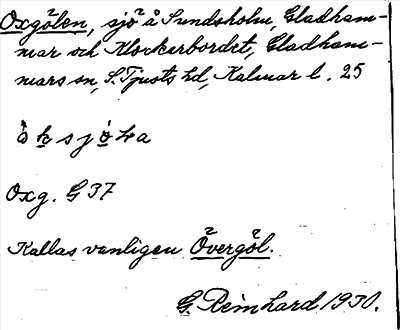 Oxgölen, sjö å Sundsholm, Gladham-
mar och Klockerbordet, Gladham-
mars sn, S. Tjusts hd, Kalmar l. 25
Oxg. G 37
Kallas vanligen Övergöl.
G. Reinhard 1930.